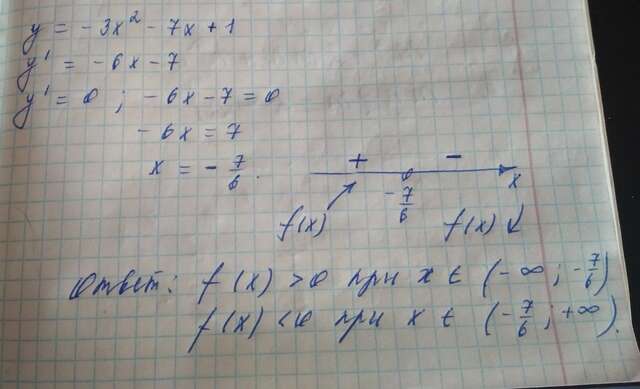 y = -3x² - 7x + 1
y' = -6x - 7
y' = 0 ; -6x - 7 = 0
-6x = 7
x = -7/6.
+ -
-7/6 x
f(x) ↗ f(x) ↓
Ответ: f(x) > 0 при x ∈ (-∞; -7/6)
f(x) < 0 при x ∈ (-7/6; +∞).